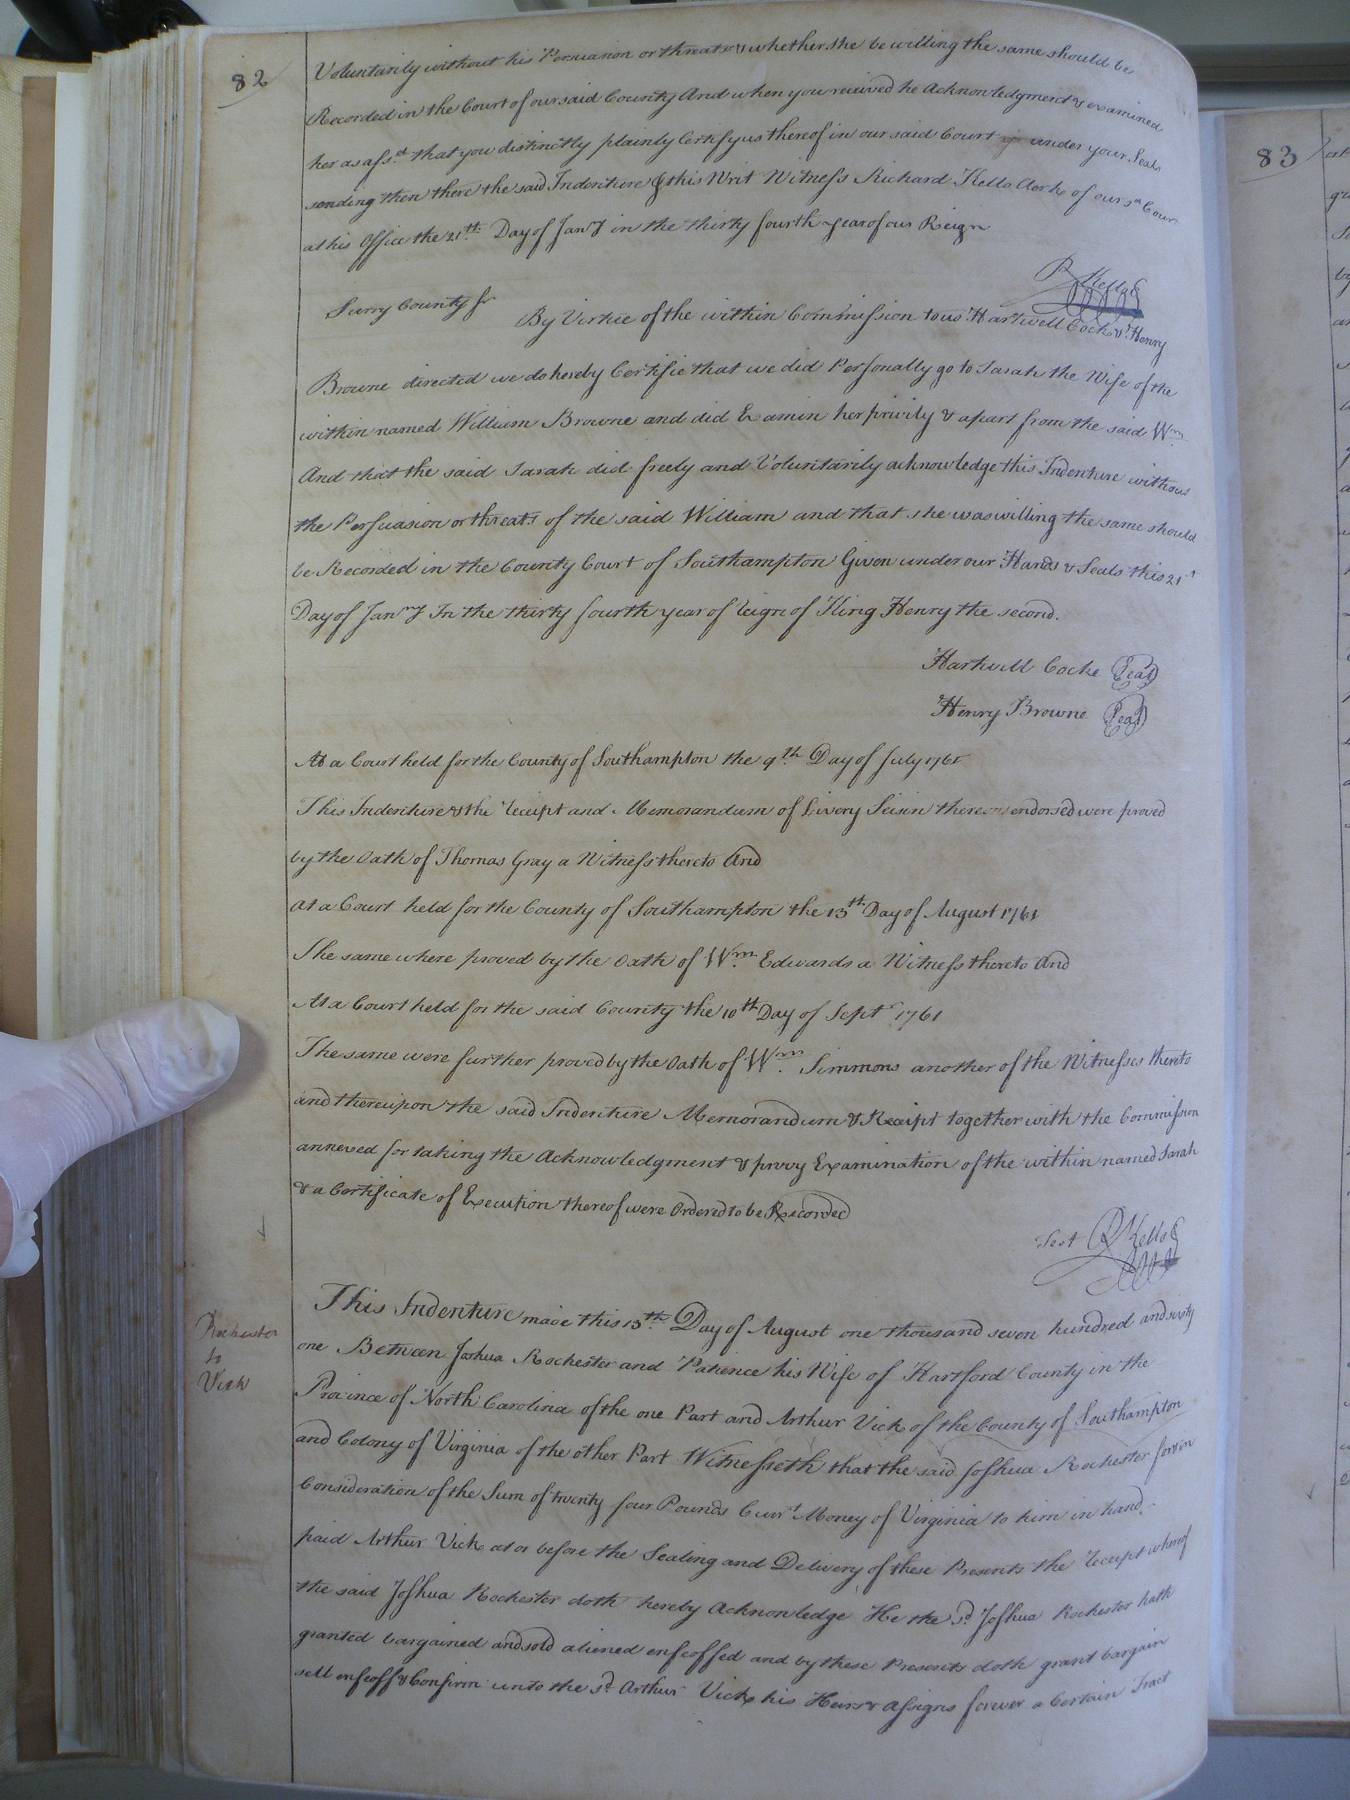 82
Voluntarily without his Persuasion or threats & whether she be willing the same should be
Recorded in the Court of our said County And when you received he Acknowledgment & examined
her as afsd. that you distinctly plainly Certify us thereof in our said Court under your Seals
sending then there the said Indenture & this Writ Witness Richard Kello Clerk of our sd Court
at his Office the 21th. Day of Jany in the thirty fourth year of our Reign
R Kello
Surry County Ss
By Virtue of the within Commission to us Hartwell Cock & Henry
Browne directed we do hereby Certifie that we did Personally go to Sarah the Wife of the
within named William Browne and did Examin her privily & apart from the said Wm.
And that the said Sarah did freely and Voluntarily acknowledge this Indenture without
the Persuasion or threats of the said William and that she was willing the same should
be Recorded in the County Court of Southampton Given under our Hands & Seals this 21st
Day of Janry In the thirty fourth year of Reign of King Henry the second.
Hartwell Cocke Seal
Henry Browne Seal
At a Court held for the County of Southampton the 9th. Day of July 1761
This Indenture & the Receipt and Memorandum of Livery Seisin thereon endorsed were proved
by the Oath of Thomas Gray a Witness thereto And
at a Court held for the County of Southampton the 13th Day of August 1761
The same where proved by the Oath of Wm. Edwards a Witness thereto And
At a Court held for the said County the 10th Day of Septr 1761
The same were further proved by the Oath of Wm. Simmons another of the Witnesses thereto
and thereupon the said Indenture Memorandum & Receipt together with the Commission
annexed for taking the Acknowledgment & privy Examination of the within named Sarah
& a Certificate of Execution thereof were Ordered to be Recorded
Test R Kello
Rochester
to
Vick
This Indenture made this 13th. Day of August one thousand seven hundred and sixty
one Between Joshua Rochester and Patience his Wife of Hartford County in the
Province of North Carolina of the one Part and Arthur Vick of the County of Southampton
and Colony of Virginia of the other Part Witnesseth that the said Joshua Rochester for & in
Consideration of the Sum of twenty four Pounds Currt. Money of Virginia to him in hand
paid Arthur Vick at or before the Sealing and Delivery of these Presents the Receipt whereof
the said Joshua Rochester doth hereby Acknowledge He the sd. Joshua Rochester hath
granted bargained and sold aliened enfeoffed and by these Presents doth grant bargain
sell enfeoff & Confirm unto the sd. Arthur Vick his Heirs & Assigns forever a Certain Tract
83